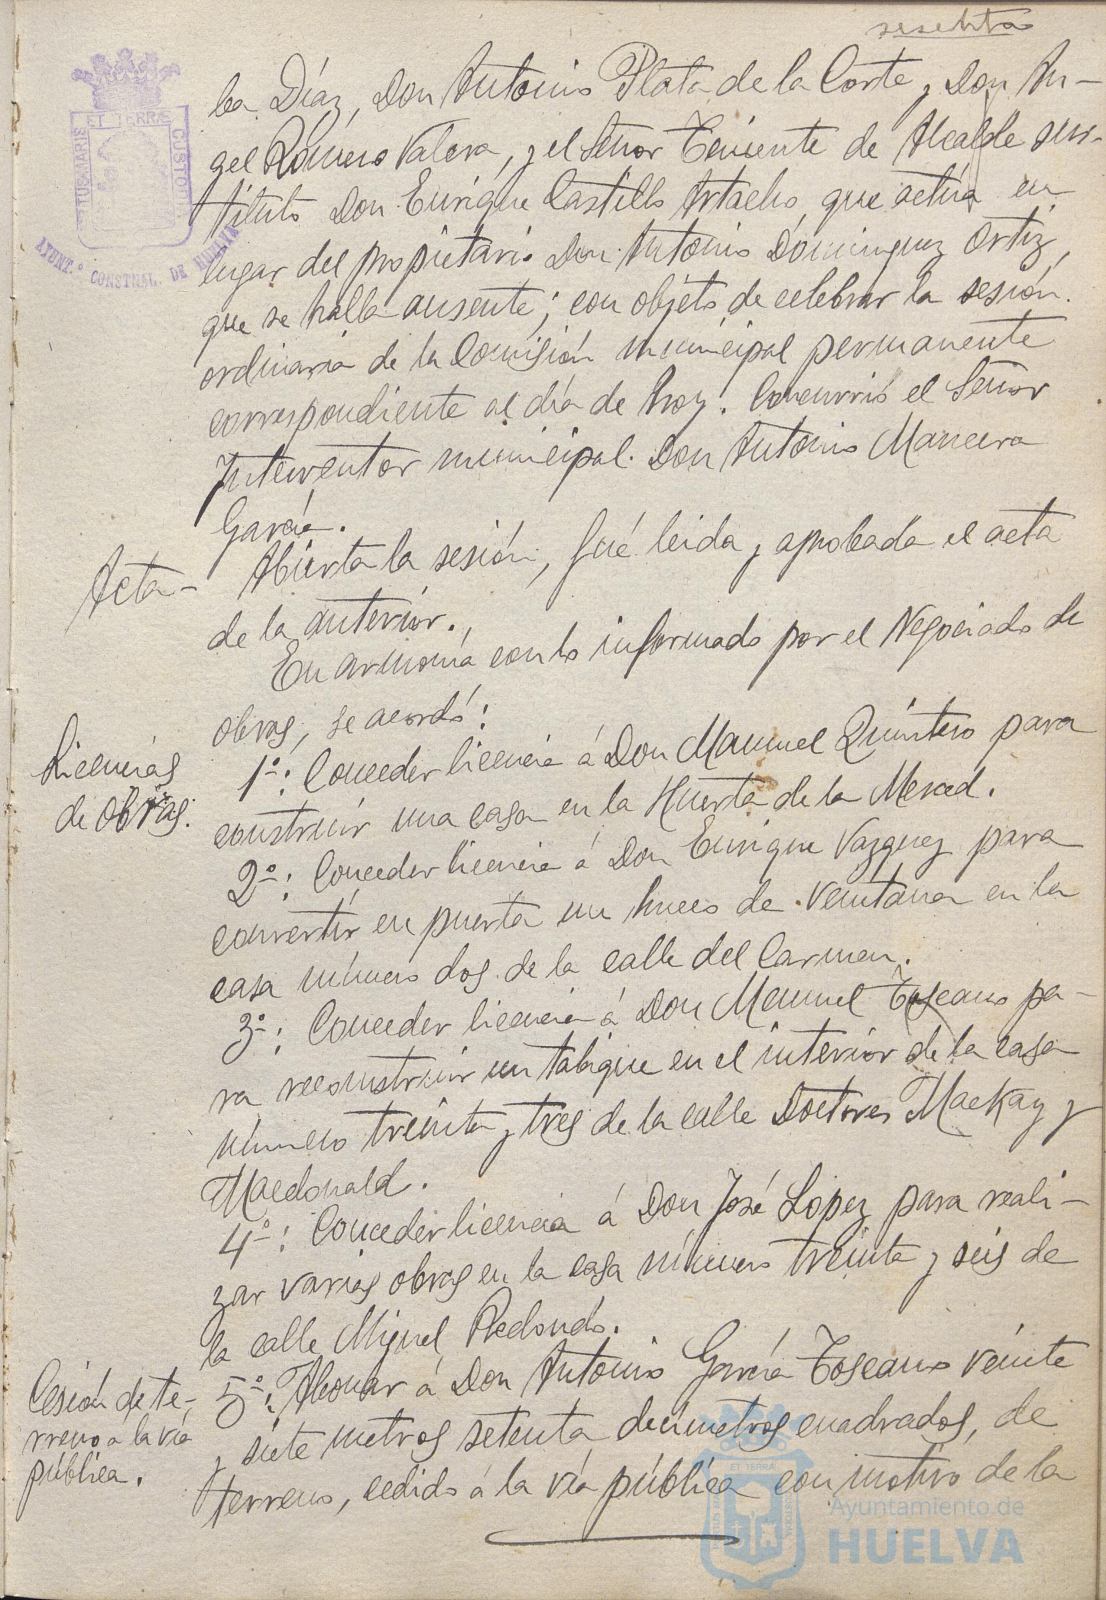 sesenta
ba Díaz, Don Antonio Plata de la Corte y Don An-
gel Romero Valera, y el Señor Teniente de Alcalde sus-
tituto Don Enrique Castillo Artacho, que actúa en
lugar del propietario Don Antonio Dominguez Ortiz,
que se halla ausente; con objeto de celebrar la sesión
ordinaria de la Comisión municipal permanente
correspondiente al día de hoy. Concurrió el Señor
Interventor municipal Don Antonio Mancera
García.
Acta- Abierta la sesión, fué leida y aprobada el acta
de la anterior.
En armonía con lo informado por el Negociado de
obras, se acordó:
Licencias
de obras.
1º: Conceder licencia á Don Manuel Quintero para
construir una casa en la Huerta de la Merced.
2º: Conceder licencia á Don Enrique Vazquez para
convertir en puerta un hueco de ventana en la
casa número dos de la calle del Carmen.
3º: Conceder licencia á Don Manuel Toscano pa-
ra reconstruir un tabique en el interior de la casa
número treinta y tres de la calle Doctores Mackay y
Macdonald.
4º: Conceder licencia á Don José Lopez para reali-
zar varias obras en la casa número treinta y seis de
la calle Miguel Redondo.
Cesión de te-
rreno a la vía
pública.
5º: Abonar á Don Antonio García Toscano veinte
y siete metros setenta decímetros cuadrados, de
terreno, cedido á la vía pública con motivo de la
ET TERRÆ CUSTODIA
AYUNT.º CONSTNAL. DE HUELVA
Ayuntamiento de
HUELVA